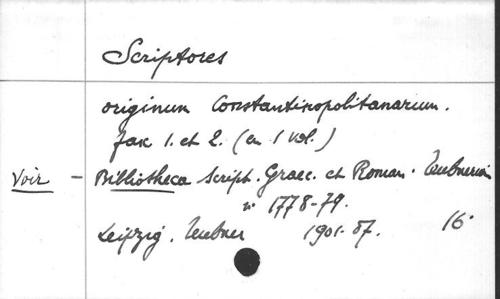 Scriptores
originum Constantinopolitanarum.
fasc 1. et 2. (en 1 vol.)
Voir - Bibliotheca Script. Graec. et Roman. Teubnerian
n° 1778-79.
Leipzig. Teubner 1901-07. 16°